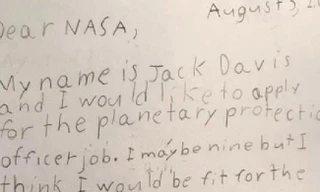 August 3,
Dear NASA,
My name is Jack Davis
and I would like to apply
for the planetary protectio
officer job. I may be nine but I
think I would be fit for the